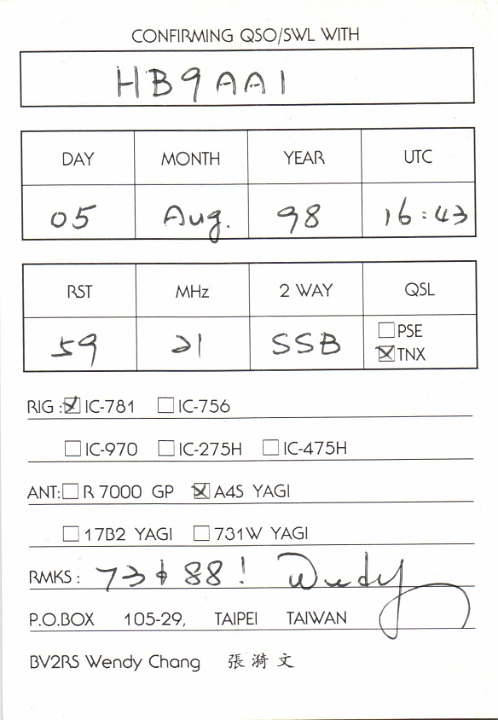 CONFIRMING QSO/SWL WITH
HB9AAI
DAY MONTH YEAR UTC
05 Aug. 98 16:43
RST MHz 2 WAY QSL
59 21 SSB ☐PSE
☒TNX
RIG :☑IC-781 ☐IC-756
☐IC-970 ☐IC-275H ☐IC-475H
ANT:☐R 7000 GP ☒A4S YAGI
☐17B2 YAGI ☐731W YAGI
RMKS : 73 & 88! Wendy
P.O.BOX 105-29, TAIPEI TAIWAN
BV2RS Wendy Chang 張漪文